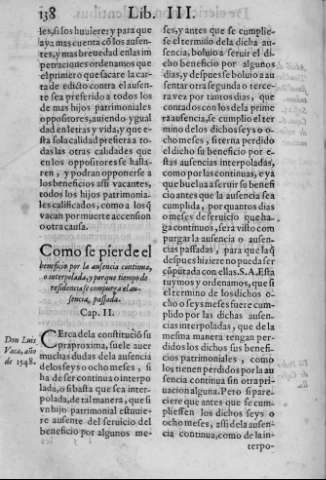 138 Lib. III.
les, si los huuiere: y para que
aya mas cuenta cõ los ausen-
tes, y mas breuedad enlas im-
petraciones ordenamos que
el primero que sacare la car-
ta de edicto contra el ausen-
te sea preferido a todos los
de mas hijos patrimoniales
oppositores, auiendo ygual
dad en letras y vida, y que e-
sta sola calidad prefiera a to-
das las otras calidades que
en los oppositores se halla-
ren, y podran opponerse a
los beneficios assi vacantes,
todos los hijos patrimonia-
les calificados, como a los q̃
vacan por muerte accension
o otra causa.
Como se pierde el
beneficio por la ausencia continua,
o interpolada, y porque tiempo de
residencia se compurga el au-
sencia, passada.
Cap. II.
Don Luis
Vaca, año
de 1548.
CErca dela constituciõ su
pra proxima, suele auer
muchas dudas dela ausencia
de los seys o ocho meses, si
ha de ser continua o interpo
lada, o si basta que sea inter-
polada, de tal manera, que si
vn hijo patrimonial estuuie
re ausente del seruicio del
beneficio por algunos me-
ses, y antes que se cumplie-
se el termino dela dicha au-
sencia, boluio a seruir el di-
cho beneficio por algunos
dias, y despues se boluio a au
sentar otra segunda o terce-
ra vez por tantos dias, que
contados con los dela prime
ra ausencia, se cumplio el ter
mino delos dichos seys o o-
cho meses, si terna perdido
el dicho su beneficio por e-
stas ausencias interpoladas,
como por las continuas, e ya
que buelua a seruir su benefi
cio antes que la ausencia sea
cumplida, por quantos dias
o meses de seruicio que ha-
ga continuos, sera visto com
purgar la ausencia o ausen-
cias passadas, para que la q̃
despues hiziere no pueda ser
cõputada con ellas. S.A. Esta
tuymos y ordenamos, que si
el termino de los dichos o-
cho o seys meses fuere cum-
plido por las dichas ausen-
cias interpoladas, que de la
mesma manera tengan per-
didos los dichos sus benefi-
cios patrimoniales, como
los tienen perdidos por la au
sencia continua sin otra pri-
uacion alguna. Pero si pare-
ciere que antes que se cum-
pliessen los dichos seys o
ocho meses, assi dela ausen-
cia continua, como de la in-
terpo-